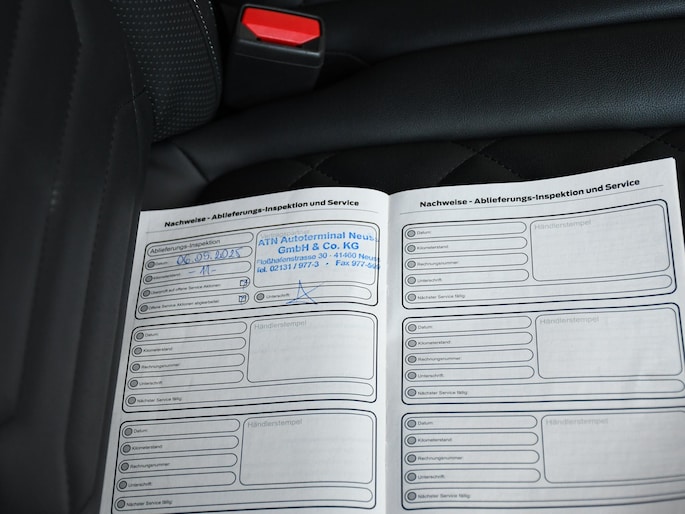 Nachweise - Ablieferungs-Inspektion und Service
Ablieferungs-Inspektion
Datum 06.09.2025
Kilometerstand 11.-
Überprüft auf offene Service Aktionen
Offene Service Aktionen abgearbeitet
ATN Autoterminal Neuss
GmbH & Co. KG
Floßhafenstrasse 30 - 41460 Neuss
Tel. 02131 / 977-3 • Fax 977-
Unterschrift
Datum
Kilometerstand
Rechnungsnummer
Unterschrift
Nächster Service fällig
Händlerstempel
Datum
Kilometerstand
Rechnungsnummer
Unterschrift
Nächster Service fällig
Händlerstempel
Nachweise - Ablieferungs-Inspektion und Service
Datum
Kilometerstand
Rechnungsnummer
Unterschrift
Nächster Service fällig
Händlerstempel
Datum
Kilometerstand
Rechnungsnummer
Unterschrift
Nächster Service fällig
Händlerstempel
Datum
Kilometerstand
Rechnungsnummer
Unterschrift
Nächster Service fällig
Händlerstempel